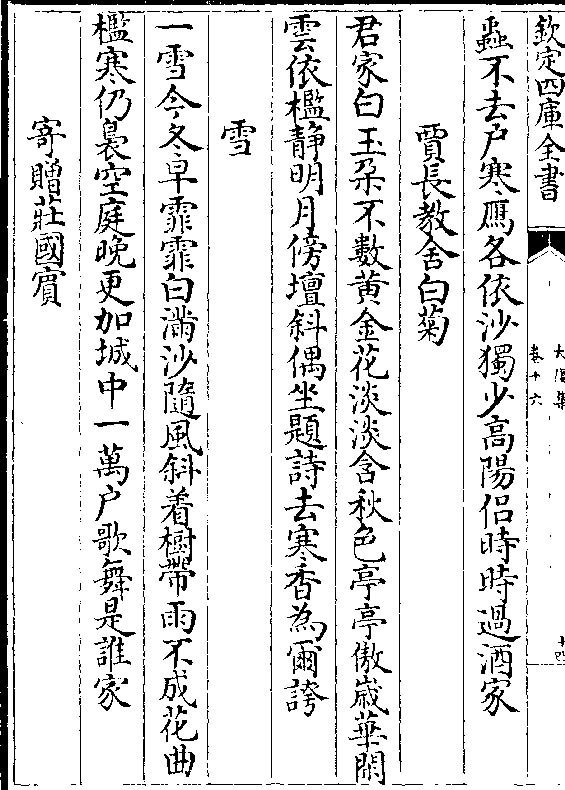 欽定四庫全書
卷十六
蝨不去户寒鴈各依沙獨少高陽侣時時過酒家
賈長教舍白菊
君家白玉朶不數黄金花淡淡含秋色亭亭傲嵗華閒
雲依檻静明月傍壇斜偶坐題詩去寒香為爾誇
雪
一雪今冬早霏霏白滿沙隨風斜着樹帶雨不成花曲
檻寒仍裊空庭晚更加城中一萬户歌舞是誰家
寄贈莊國賓